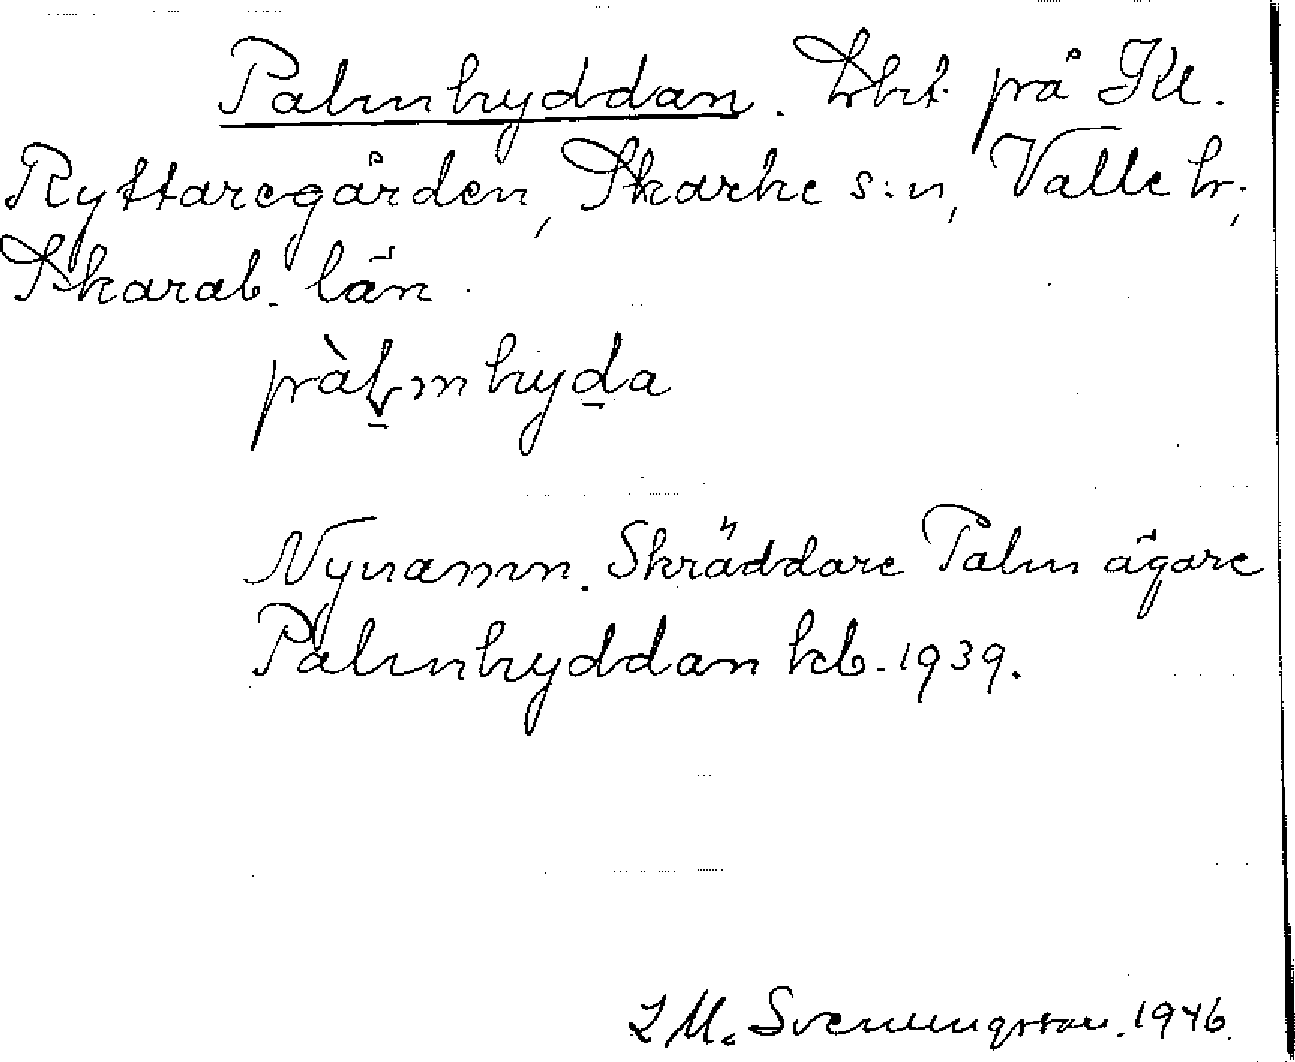 Palmhyddan. Lht på St.
Ryttaregården, Skarke s:n, Valle hr,
Skarab. län
pàłmhyda
Nynamn. Skräddare Palm ägare
Palmhyddan kb. 1939.
I M. Svenungsson. 1946.